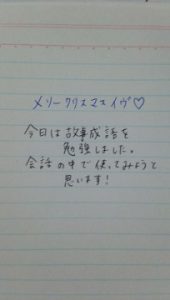 メリークリスマスイヴ♡
今日は故事成語を
勉強しました。
会話の中で使ってみようと
思います!